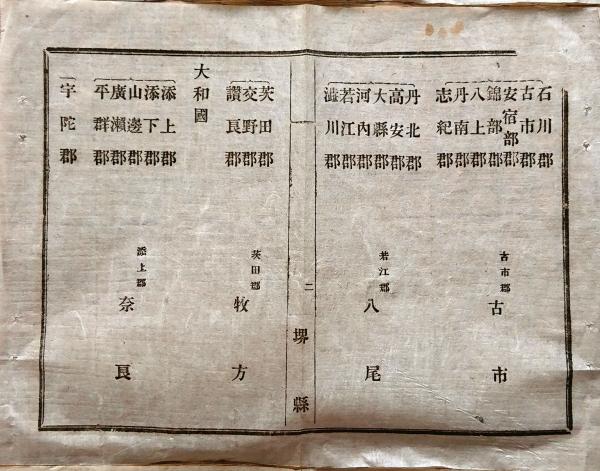 石川郡
古市郡
安宿部郡
錦部郡
八上郡
丹南郡
志紀郡
古市郡
古市
丹北郡
高安郡
大縣郡
河內郡
若江郡
澁川郡
若江郡
八尾
二
堺縣
茨田郡
交野郡
讚良郡
茨田郡
牧方
大和國
添上郡
添下郡
山邊郡
廣瀨郡
平群郡
添上郡
奈良
一宇陀郡